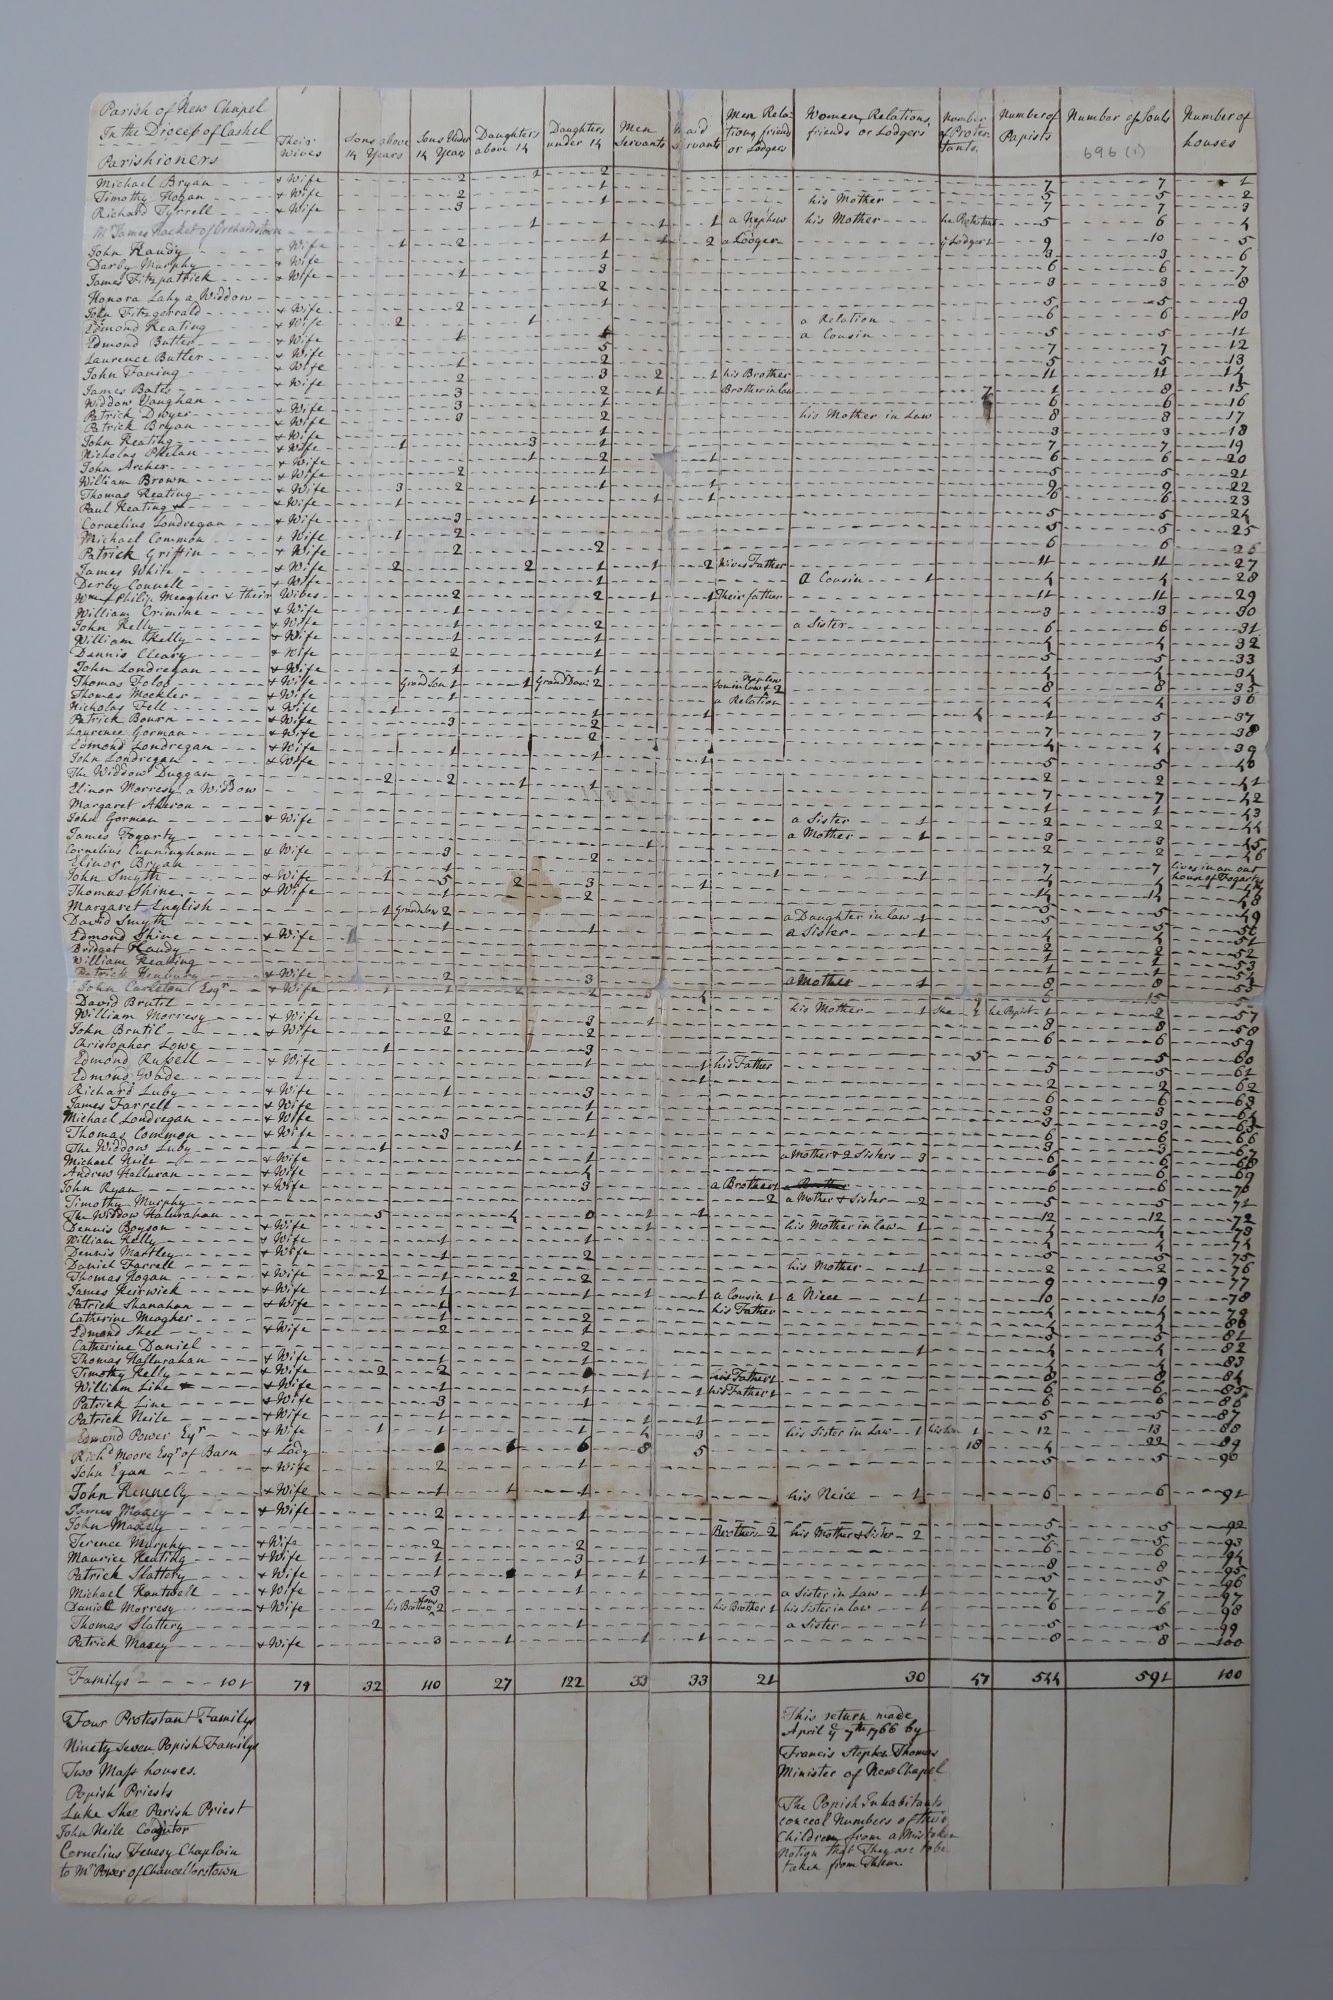 Parish of New Chapel
In the Diocess of Cashel
Parishioners
Their Wives
Sons above 14 Years
Sons Under 14 Years
Daughters above 14
Daughters under 14
Men Servants
Maid Servants
Men Relations friends or Lodgers
Women Relations, friends or Lodgers
Number of Protestants.
Number of Papists
Number of Souls
696 (1)
Number of houses
Michael Bryan + Wife 2 1 2 7 7 1
Timothy Hogan + Wife 2 1 his Mother 5 5 2
Richard Tyrrell + Wife 3 1 7 7 3
Mr James Hacket of Orchardstown 1 1 1 a Nephew his Mother he Protestant 5 6 4
John Haudy + Wife 1 2 1 1 2 a Lodger 9 10 5
Darby Murphy + Wife 1 3 3 6
James Fitzpatrick + Wife 1 3 6 6 7
Honora Lahy a Widdow 2 3 3 8
John Fitzgerrald + Wife 2 1 5 5 9
Edmond Keating + Wife 2 1 a Relation 6 6 10
Edmond Butler + Wife 1 a Cousin 5 5 11
Laurence Butler + Wife 5 7 7 12
John Faning + Wife 1 2 5 5 13
James Bates + Wife 2 3 2 1 his Brother 11 11 14
Widdow Vaughan 3 2 1 Brother in law 7 1 8 15
Patrick Dwyer + Wife 3 1 6 6 16
Patrick Bryan + Wife 3 2 his Mother in Law 8 8 17
John Keating + Wife 1 3 3 18
Nicholas Phelan + Wife 1 3 1 7 7 19
John Archer + Wife 1 2 1 6 6 20
William Brown + Wife 2 1 5 5 21
Thomas Keating + Wife 3 2 1 1 9 9 22
Paul Keating + Wife 1 1 1 1 6 6 23
Cornelius Londregan + Wife 3 5 5 24
Michael Common + Wife 1 2 5 5 25
Patrick Griffin + Wife 2 2 6 6 26
James White + Wife 2 2 1 1 2 Wives Father 11 11 27
Derby Connell + Wife 1 a Cousin 1 4 4 28
Wm + Philip Meagher + their Wibes 2 2 1 1 Their father 11 11 29
William Crimine + Wife 1 3 3 30
John Kelly + Wife 1 2 a Sister 6 6 31
William Kelly + Wife 1 1 4 4 32
Dennis Cleary + Wife 2 1 5 5 33
John Londregan + Wife 1 1 4 4 34
Thomas Foloe + Wife Grandson 1 1 Grand Daur 2 Son in law + 2 Nephew 8 8 35
Thomas Mockler + Wife 1 a Relation 4 4 36
Nicholas Fell + Wife 1 1 1 4 1 5 37
Patrick Bourn + Wife 3 2 7 7 38
Laurence Gorman + Wife 2 4 4 39
Edmond Londregan + Wife 1 1 1 5 5 40
John Londregan + Wife 2 2 41
The Widdow Duggan 2 2 1 1 7 7 42
Elinor Morresy a Widdow 1 1 43
Margaret Aheron
John Gorman + Wife a Sister 1
James Fogarty a Mother 1
Cornelius Cunningham + Wife 3 2 7 7
lives in an out house of Fogartys
Elinor Bryan 1
John Smyth + Wife 1 5 2 3 1 1 1
Thomas Shine + Wife 1 2
Margaret English 1 Grandson 2
David Smyth 1 1 a Daughter in law 1
Edmond Shine + Wife a Sister 1
Bridget Haudy
William Keating
Patrick Henbury + Wife 2 3 a Mother 1 8 8
John Carleton Esqr + Wife
David Brutil his Mother 1 She he Papist 1
William Morresy + Wife 2 3 1 8 8 58
John Brutil + Wife 2 2 6 6 59
Christopher Lowe 1 3 5 5 60
Edmond Russell + Wife 1 1 his Father 5 5 61
Edmond Wade 1 2 2 62
Richard Luby + Wife 1 3 6 6 63
James Farrell + Wife 1 3 3 64
Michael Londregan + Wife 1 3 3 65
Thomas Common + Wife 3 1 6 6 66
The Widdow Luby 1 1 3 3 67
Michael Neile + Wife 1 a Mother + 2 Sisters 3 6 6 68
Andrew Halluran + Wife 4 6 6 69
John Ryan + Wife 3 a Brother 1 6 6 70
Timothy Murphy 2 a Mother + Sister 2 5 5 71
The Widdow Halurahan 5 4 0 1 1 12 12 72
Dennis Boyson + Wife 1 his Mother in law 1 4 4 73
William Kelly + Wife 1 1 4 4 74
Dennis Martley + Wife 1 2 5 5 75
Daniel Farrell his Mother 1 2 2 76
Thomas Hogan + Wife 2 1 2 2 9 9 77
James Keirwick + Wife 1 1 1 1 1 1 a Cousin 1 a Niece 1 10 10 78
Patrick Shanahan + Wife 1 his Father 4 4 79
Catherine Meagher 1 2 4 4 80
Edmond Shee + Wife 2 1 5 5 81
Catherine Daniel 2 1 4 4 82
Thomas Hallurahan + Wife 1 1 4 4 83
Timothy Kelly + Wife 2 2 1 his Father 1 8 8 84
William Line + Wife 1 1 1 his Father 1 6 6 85
Patrick Line + Wife 3 1 6 6 86
Patrick Neile + Wife 1 1 1 5 5 87
Edmond Power Eqr + Wife 1 1 1 4 3 his Sister in Law 1 his Son 1 12 13 88
Richd Moore Esqr of Barn + Lady 6 8 5 18 4 22 89
John Egan + Wife 2 1 5 5 90
John Kennely + Wife 1 1 1 his Neice 1 6 6 91
James Maxey + Wife 2 1 5 5 92
John Maxey Brothers 2 his Mother + Sister 2 5 5 93
Terence Murphy + Wife 2 2 6 6 94
Maurice Keating + Wife 1 3 1 1 8 8 95
Patrick Slattery + Wife 1 1 1 5 5 96
Michael Kantwell + Wife 3 1 a Sister in Law 1 7 7 97
Daniel Morresy + Wife his Brothers Sons 2 his Brother 1 his Sister in law 1 6 6 98
Thomas Slattery 2 1 a Sister 1 5 5 99
Patrick Maxey + Wife 3 1 1 1 8 8 100
Familys 101 79 32 110 27 122 33 33 21 30 47 544 591 100
Four Protestant Familys
Ninety Seven Popish Familys
Two Mass houses.
Popish Priests
Luke Shee Parish Priest
John Neile Coadjutor
Cornelius Fenesy Chaplain
to Mr Power of Chancellorstown
This return made
April ye 7th 1766 by
Francis Stephen Thomas
Minister of New Chapel
The Popish Inhabitants
conceal Numbers of their
Children from a Mistaken
Notion that They are to be
taken from Them.